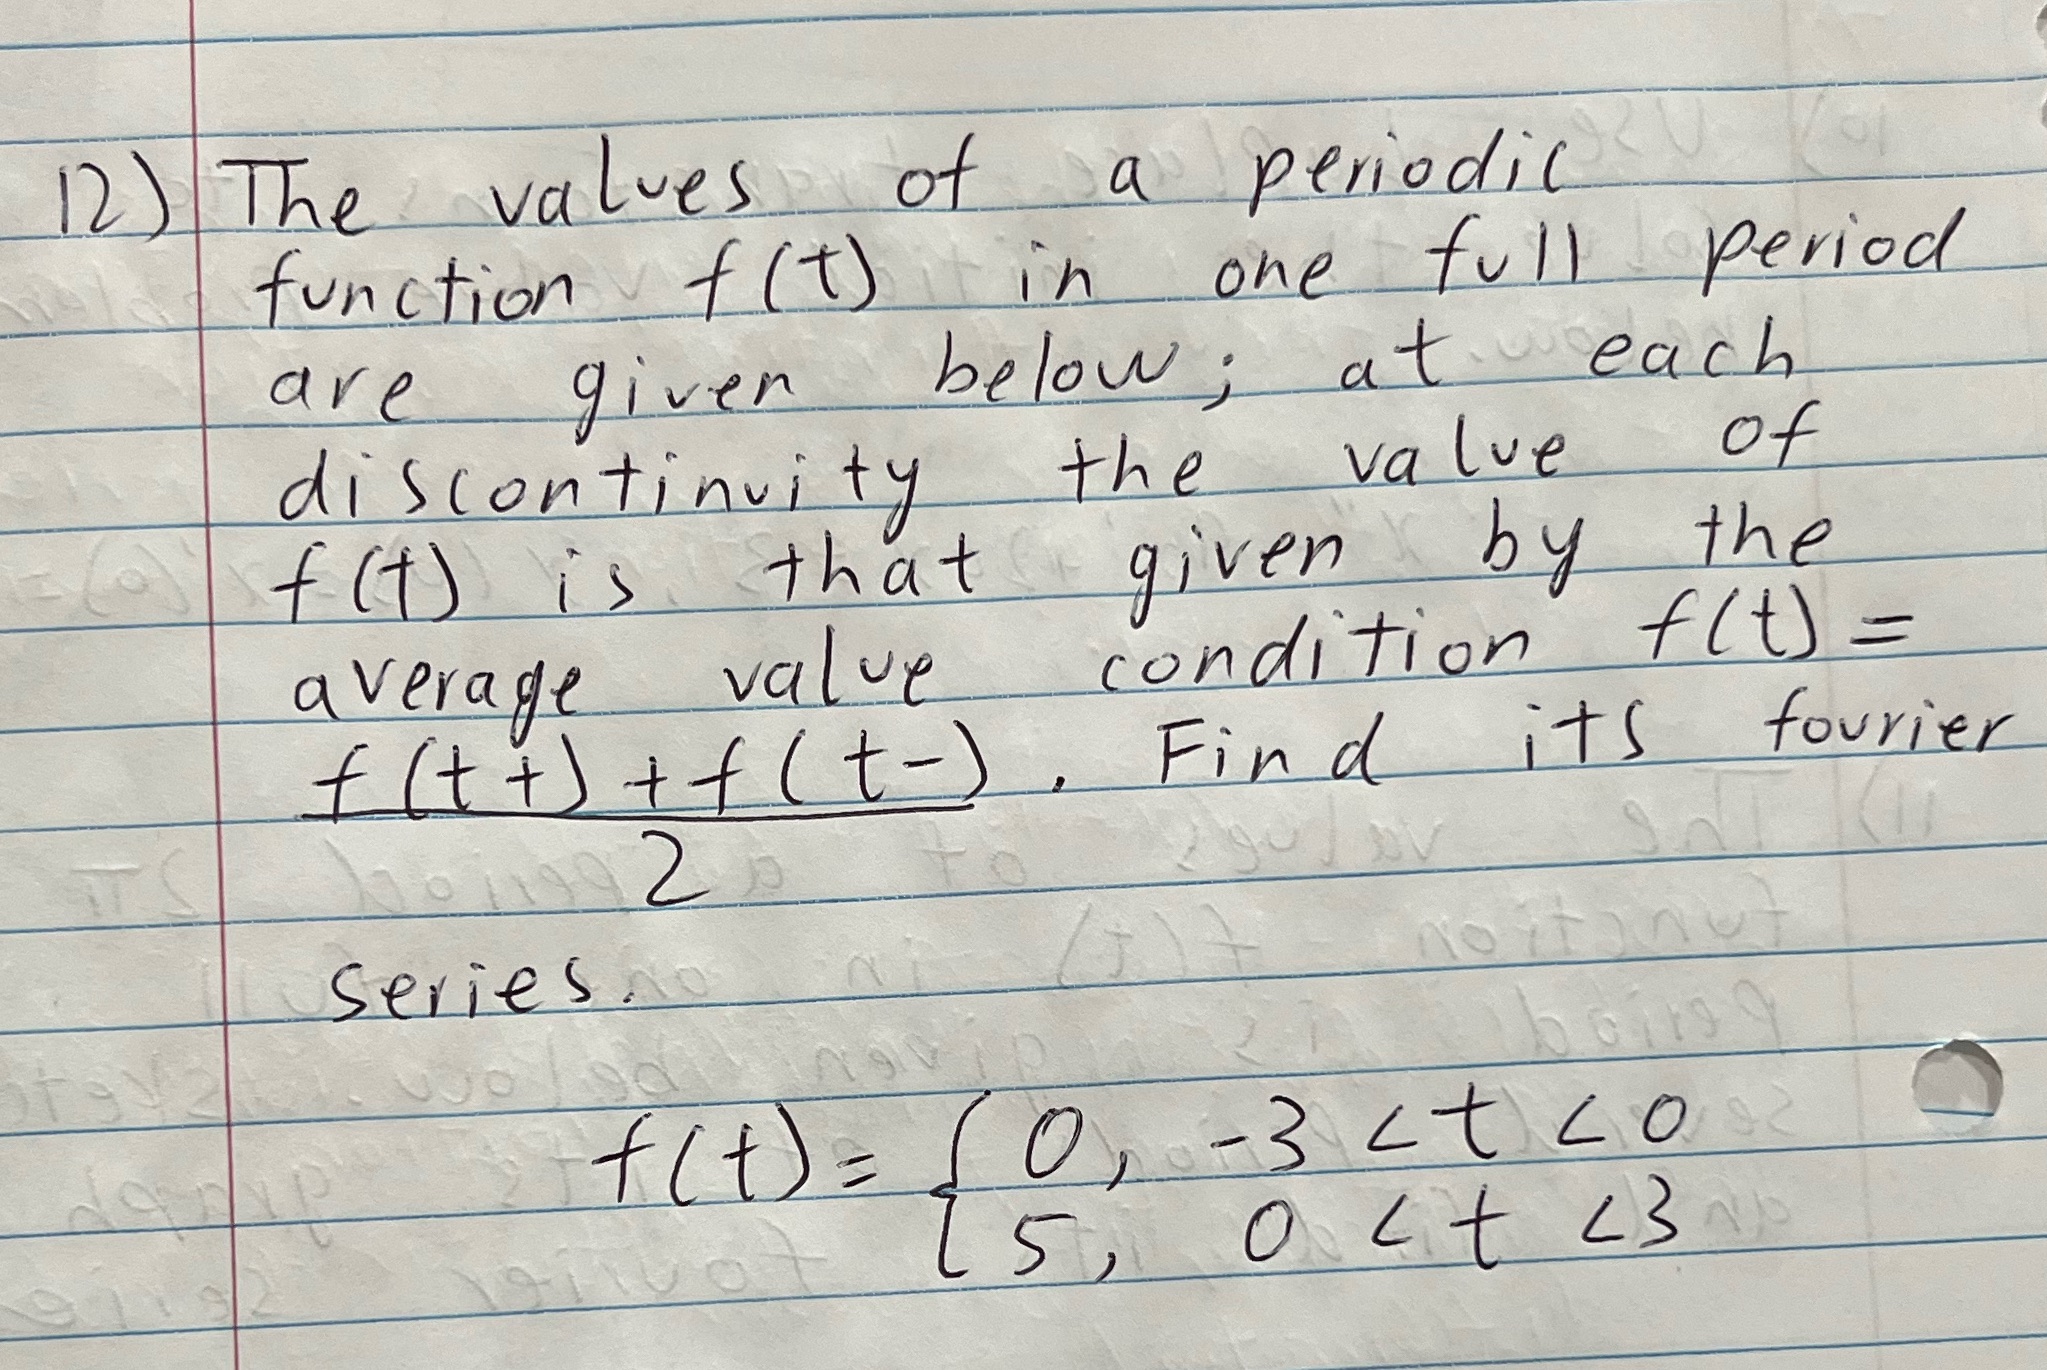 12) The values of a periodic
function f(t) in one full period
are given below; at each
discontinuity the value of
f(t) is that given by the
average value condition f(t) =
f(t+) + f(t-) . Find its fourier
2
series.
f(t) = { 0, -3 < t < 0
5, 0 < t < 3